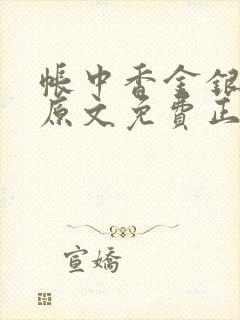 帳中香金銀
原文免費正
宣嬌